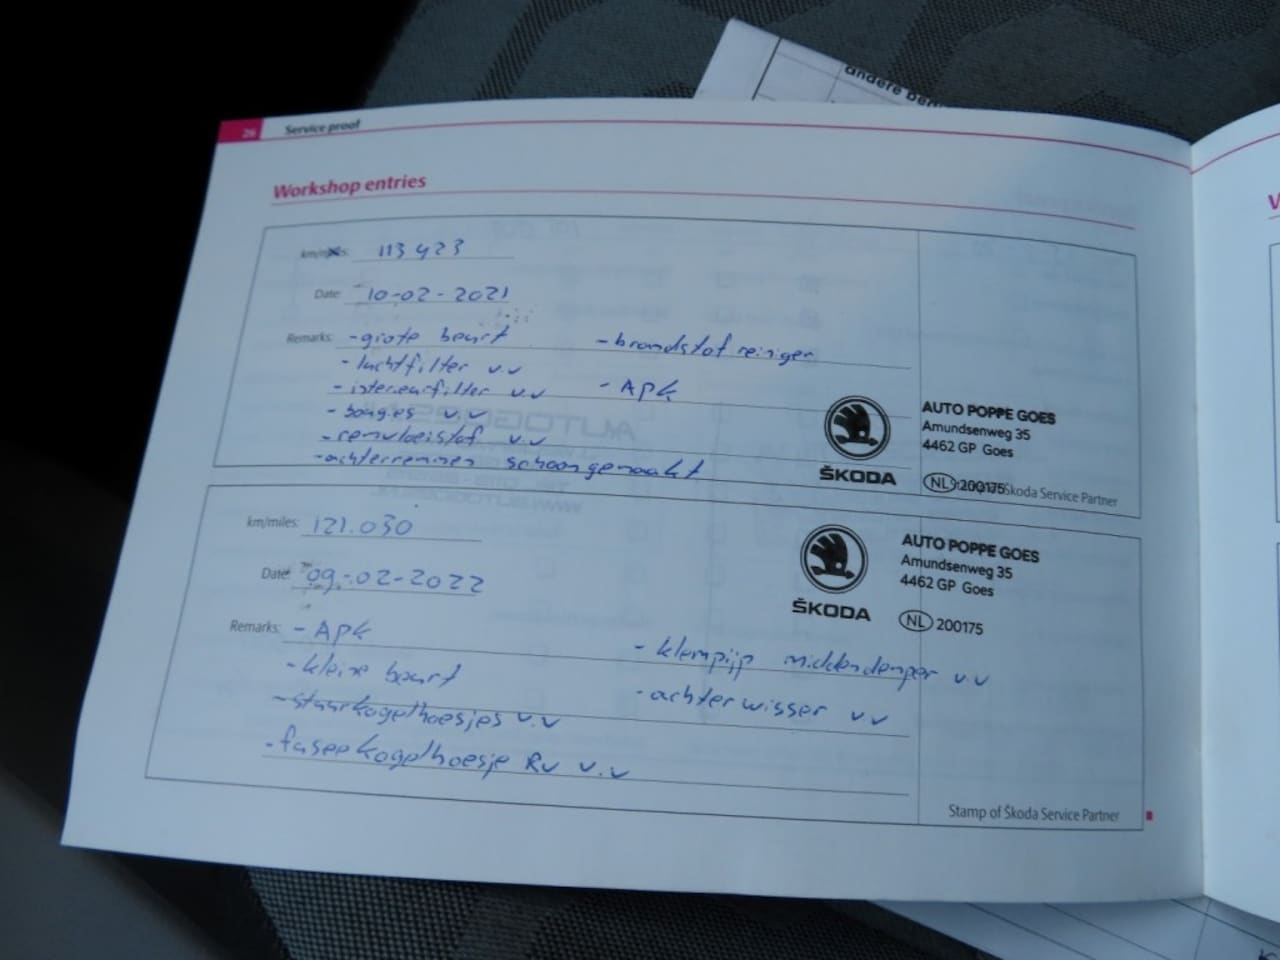 andere
26 Service proof
Workshop entries
km/miles: 113423
Date: 10-02-2021
Remarks: - grote beurt - brandstof reiniger
- luchtfilter v.v
- interieurfilter v.v - APK
- bougies v.v
- remvloeistof v.v
- achterremmen schoongemaakt
ŠKODA
AUTO POPPE GOES
Amundsenweg 35
4462 GP Goes
NL 200175
Škoda Service Partner
km/miles: 121.030
Date: 09-02-2022
Remarks: - APK
- kleine beurt
- stuurkogelhoesjes v.v
- fuseekogelhoesje RV v.v
- klempijp middendemper v.v
- achterwisser v.v
ŠKODA
AUTO POPPE GOES
Amundsenweg 35
4462 GP Goes
NL 200175
Stamp of Škoda Service Partner